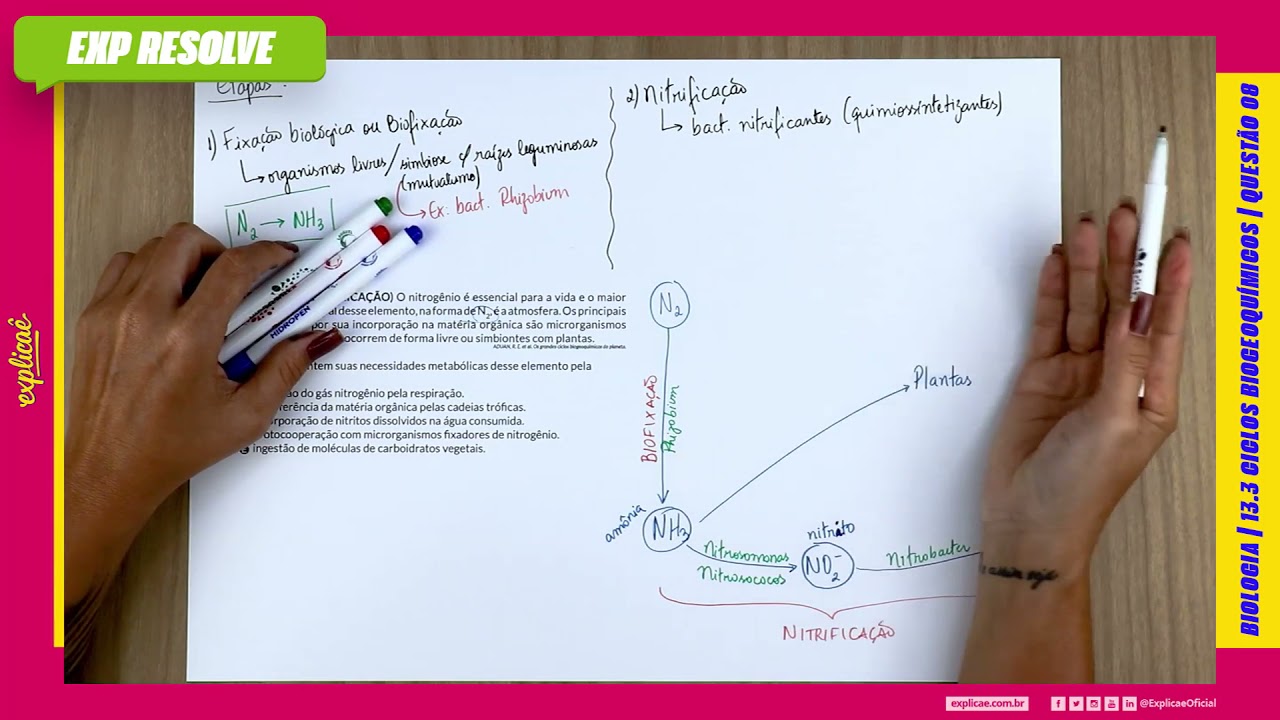 EXP RESOLVE
Etapas:
1) Fixação biológica ou Biofixação
↳ organismos livres / simbiose c/ raízes leguminosas
(mutualismo)
→ Ex: bact. Rhizobium
N₂ → NH₃
2) Nitrificação
↳ bact. nitrificantes (quimiossintetizantes)
ICAÇÃO) O nitrogênio é essencial para a vida e o maior
desse elemento, na forma de N₂, é a atmosfera. Os principais
por sua incorporação na matéria orgânica são microrganismos
ocorrem de forma livre ou simbiontes com plantas.
ADUAN, R. E. et al. Os grandes ciclos biogeoquímicos do planeta.
suas necessidades metabólicas desse elemento pela
do gás nitrogênio pela respiração.
da matéria orgânica pelas cadeias tróficas.
de nitritos dissolvidos na água consumida.
com microrganismos fixadores de nitrogênio.
ingestão de moléculas de carboidratos vegetais.
N₂
BIOFIXAÇÃO
Rhizobium
Plantas
amônia
NH₃
Nitrosomonas
Nitrosococos
nitrito
NO₂⁻
Nitrobacter
NITRIFICAÇÃO
explicaê
BIOLOGIA | 13.3 CICLOS BIOGEOQUÍMICOS | QUESTÃO 08
explicae.com.br
@ExplicaeOficial